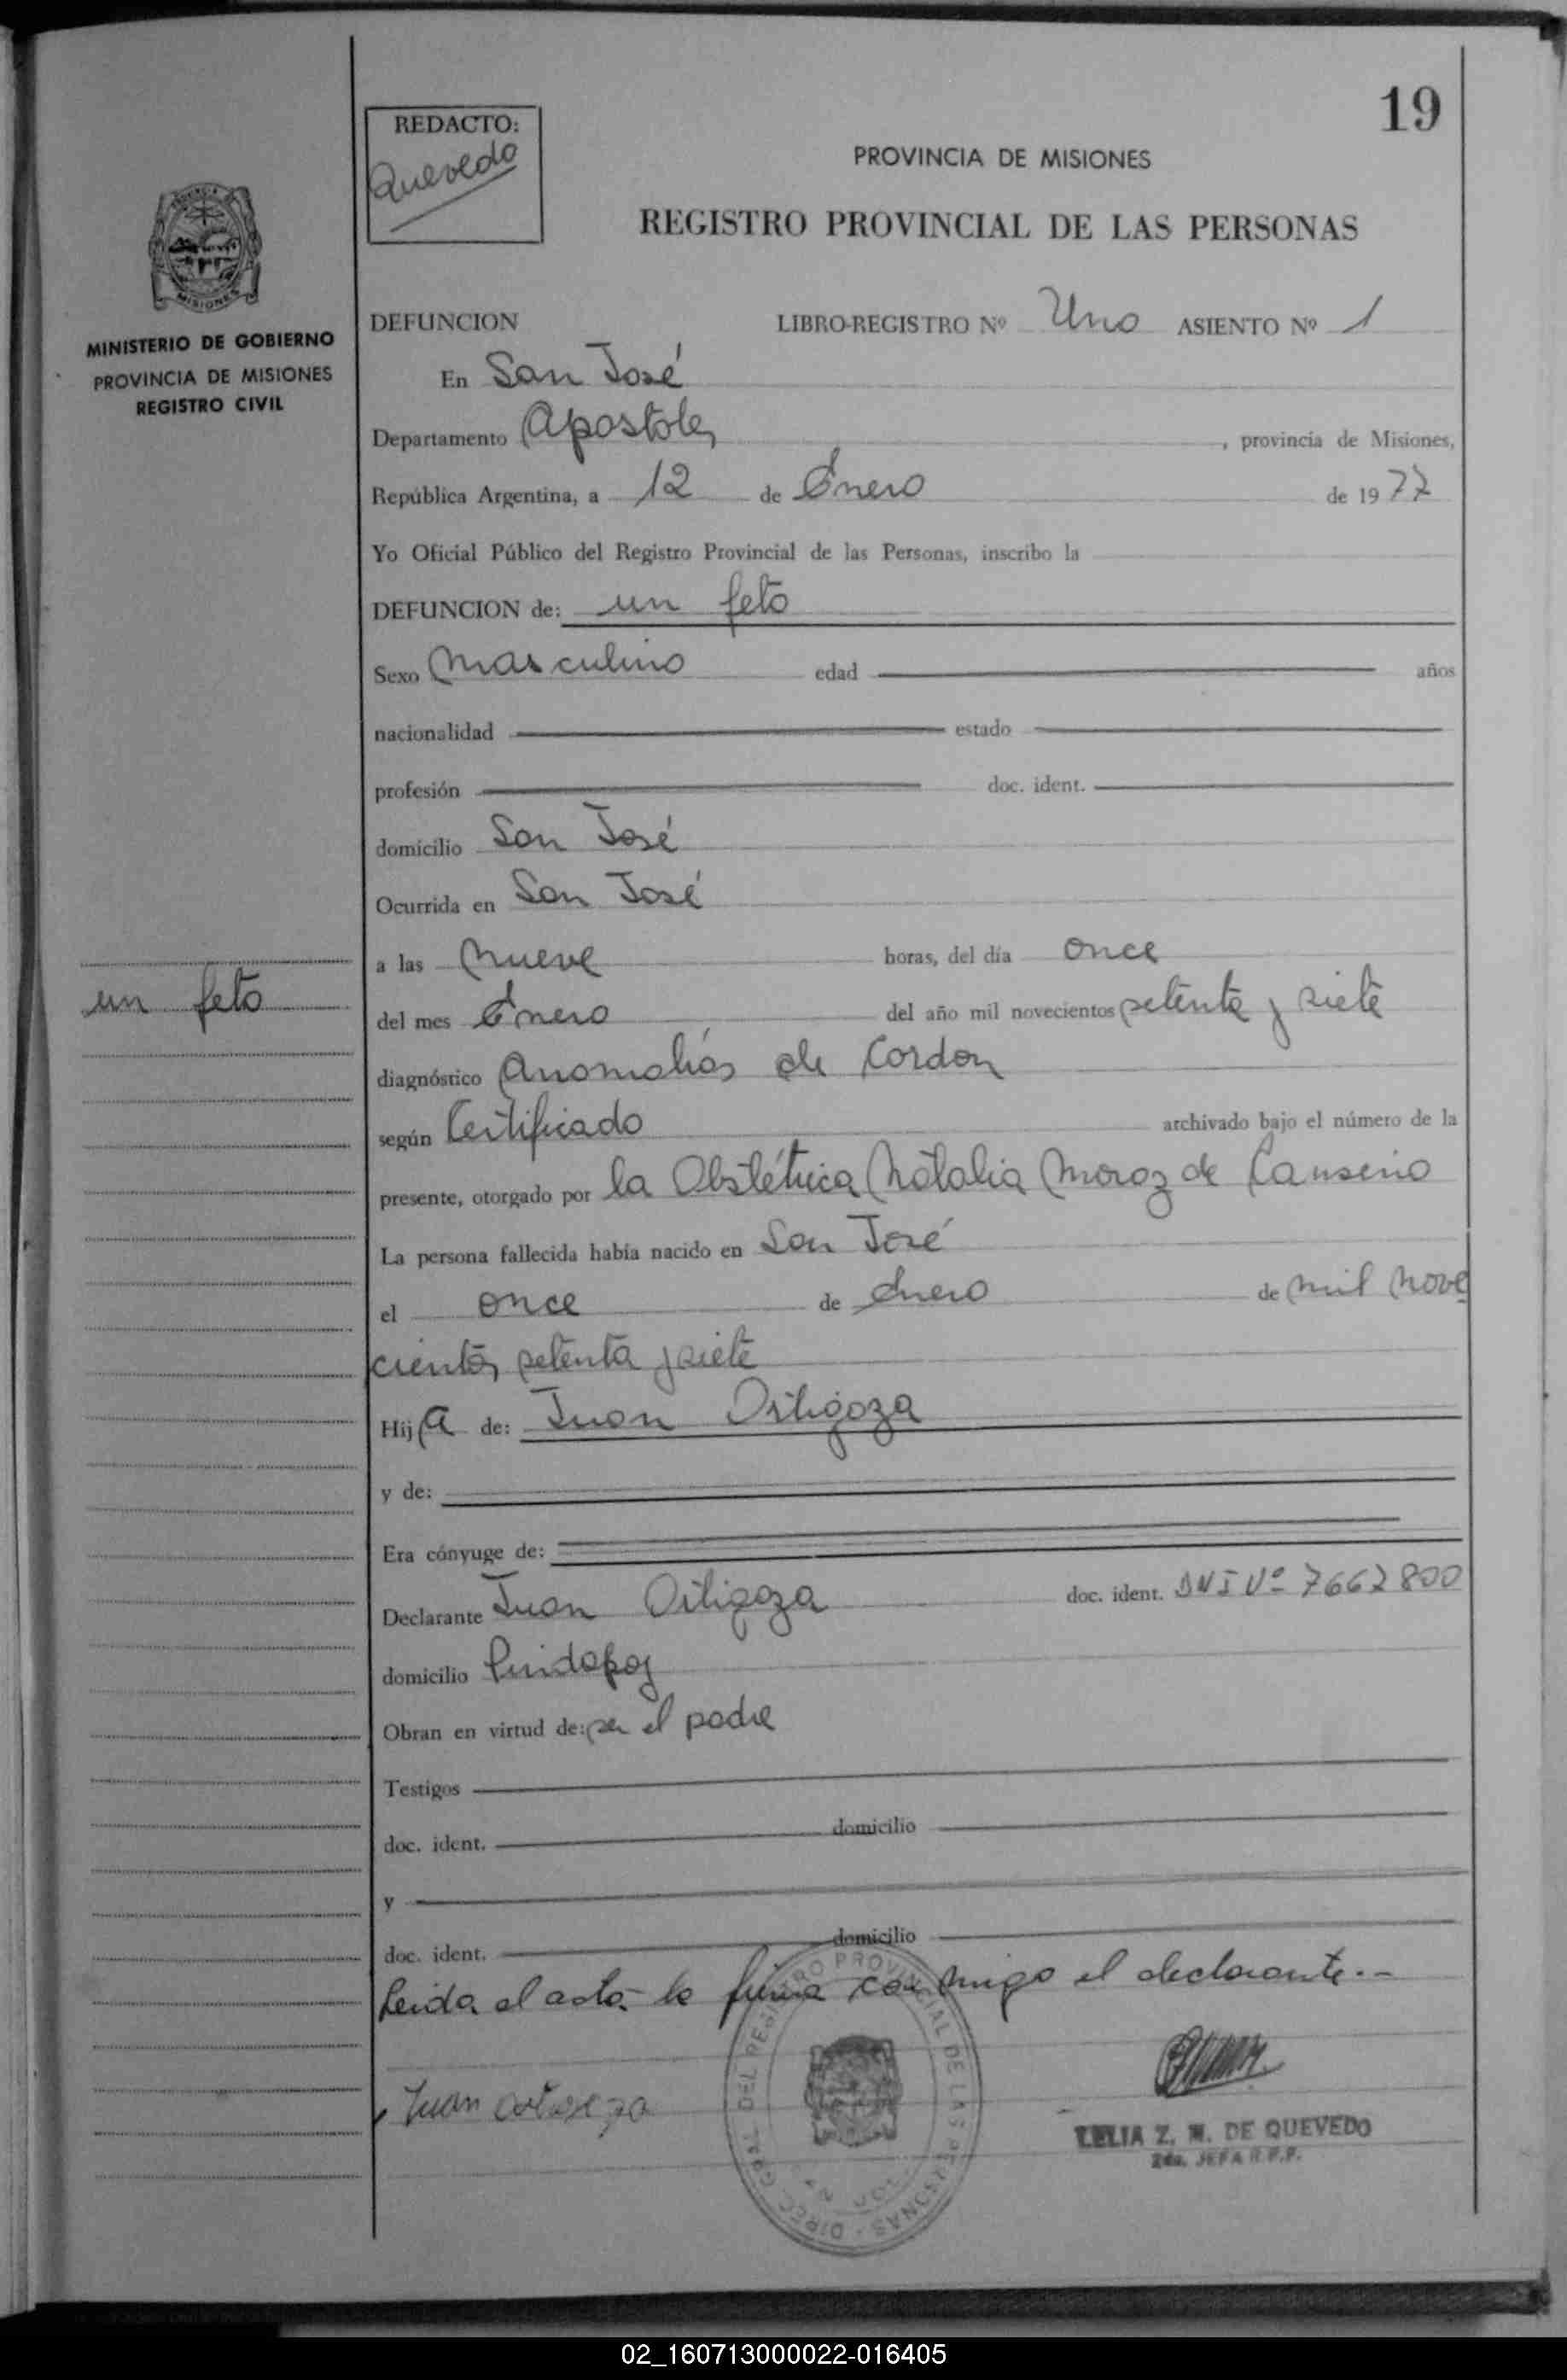 19
REDACTO:
Quevedo
PROVINCIA DE MISIONES
REGISTRO PROVINCIAL DE LAS PERSONAS
MISIONES
MINISTERIO DE GOBIERNO
PROVINCIA DE MISIONES
REGISTRO CIVIL
DEFUNCION LIBRO-REGISTRO Nº Uno ASIENTO Nº 1
En San José
Departamento Apostoles, provincia de Misiones,
República Argentina, a 12 de Enero de 1977
Yo Oficial Público del Registro Provincial de las Personas, inscribo la
DEFUNCION de: un feto
Sexo Masculino edad años
nacionalidad estado
profesión doc. ident.
domicilio San José
Ocurrida en San José
a las Nueve horas, del día once
un feto
del mes Enero del año mil novecientos setenta y siete
diagnóstico Anomalías de Cordon
según Certificado archivado bajo el número de la
presente, otorgado por la Obstétrica Natalia Moroz de
La persona fallecida había nacido en San José
el once de Enero de mil nove
cientos setenta y siete
Hija de: Juan Ortigoza
y de:
Era cónyuge de:
Declarante Juan Ortigoza doc. ident. DNI Nº 7662800
domicilio Pindapoy
Obran en virtud de: ser el padre
Testigos
doc. ident. domicilio
y
doc. ident. domicilio
Leida el acta la firma conmigo el declarante.-
Juan
DIREC. GRAL. DEL REGISTRO PROVINCIAL DE LAS PERSONAS
SAN JOSE
DE QUEVEDO
JEFA R.P.P.
02_160713000022-016405